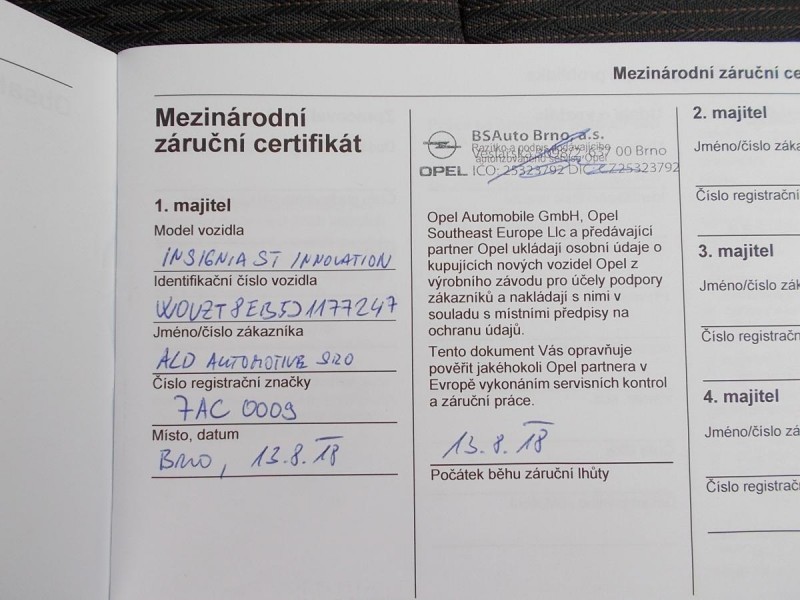 Mezinárodní záruční ce
Mezinárodní
záruční certifikát
1. majitel
Model vozidla
INSIGNIA ST INNOVATION
Identifikační číslo vozidla
W0VZT8EB5J1177247
Jméno/číslo zákazníka
ALD AUTOMOTIVE SRO
Číslo registrační značky
7AC 0009
Místo, datum
Brno, 13.8.18
BSAuto Brno, a.s.
Razítko a podpis předávajícího
637 00 Brno
autorizovaného servisu Opel
OPEL IČO: 25323792 DIČ: CZ25323792
Opel Automobile GmbH, Opel
Southeast Europe Llc a předávající
partner Opel ukládají osobní údaje o
kupujících nových vozidel Opel z
výrobního závodu pro účely podpory
zákazníků a nakládají s nimi v
souladu s místními předpisy na
ochranu údajů.
Tento dokument Vás opravňuje
pověřit jakéhokoli Opel partnera v
Evropě vykonáním servisních kontrol
a záruční práce.
13.8.18
Počátek běhu záruční lhůty
2. majitel
Jméno/číslo záka
Číslo registrační
3. majitel
Jméno/číslo zák
Číslo registračn
4. majitel
Jméno/číslo zá
Číslo registračn